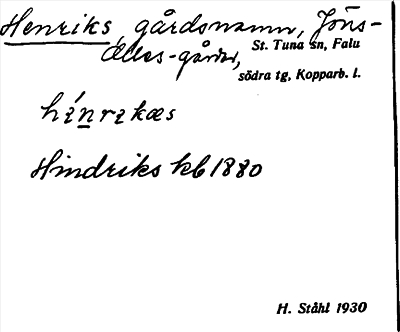 Henriks, gårdsnamn, Jöns-
ålles-gården,
St. Tuna sn, Falu
södra tg, Kopparb. l.
Hindriks kb 1880
H. Ståhl 1930